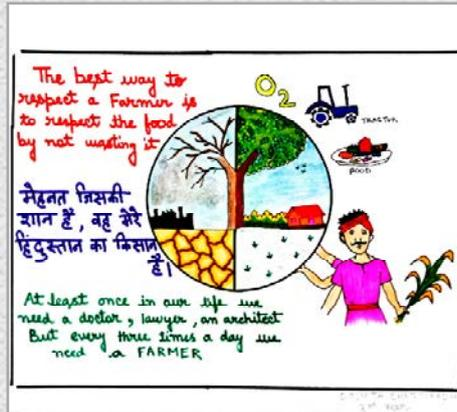 The best way to
respect a Farmer is
to respect the food
by not wasting it
O2
TRACTOR
FOOD
मेहनत जिसकी
शान है, वह मेरे
हिंदुस्तान का किसान
है।
At least once in our life we
need a doctor, lawyer, an architect
But every three times a day we
need a FARMER